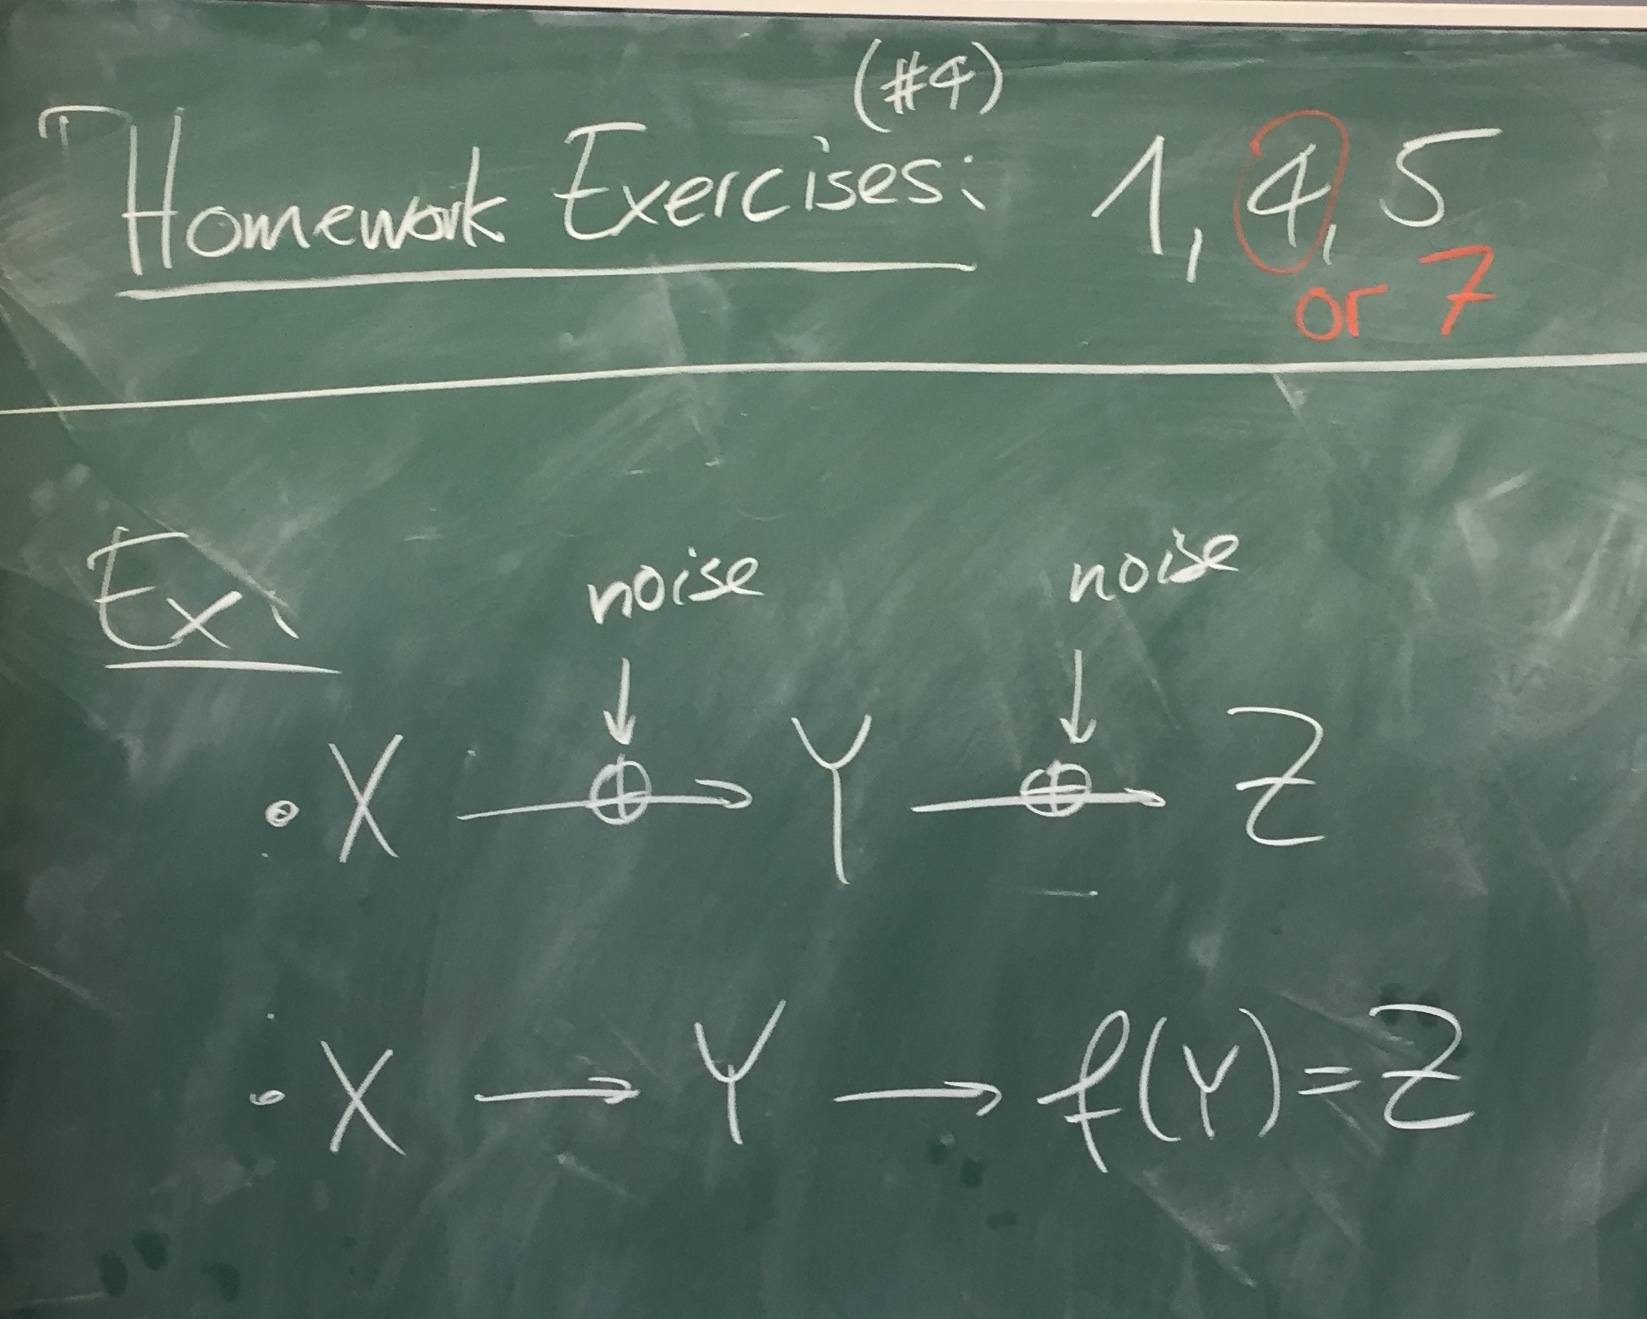 (#4)
Homework Exercises: 1, 4, 5
or 7
Ex.
noise noise
• X → ⊕ → Y → ⊕ → Z
• X → Y → f(Y) = Z